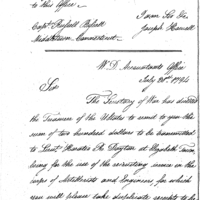 to this Office.
I am Sir &c.
Capt. Russell Bissell
Joseph Howell
Middletown Connecticut
W. D. Accountants Office
July 28th 1794
Sir
The Secretary of War has directed
the Treasurer of the UStates to remit to you the
sum of two hundred dollars to be transmitted
to Lieut. Dayton at Elizabeth Town,
being for the use of the recruiting service in the
corps of Artillerists and Engineers for which
you will please take duplicate receipts to be